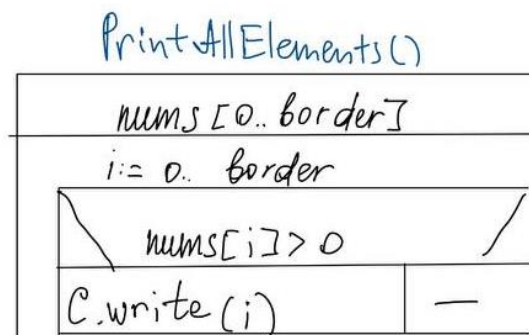 PrintAllElements()
nums[0.. border]
i:= 0.. border
nums[i]>0
C.write(i) —